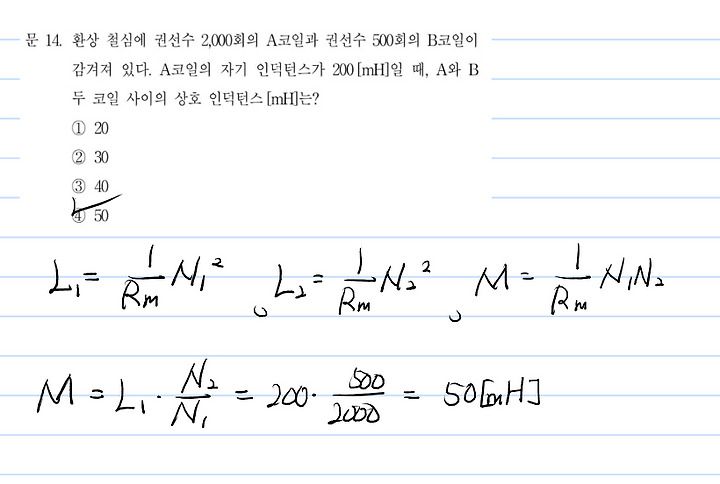 문 14. 환상 철심에 권선수 2,000회의 A코일과 권선수 500회의 B코일이
감겨져 있다. A코일의 자기 인덕턴스가 200[mH]일 때, A와 B
두 코일 사이의 상호 인덕턴스[mH]는?
① 20
② 30
③ 40
④ 50
L₁ = 1/Rm N₁² , L₂ = 1/Rm N₂² , M = 1/Rm N₁N₂
M = L₁ · N₂/N₁ = 200 · 500/2000 = 50[mH]